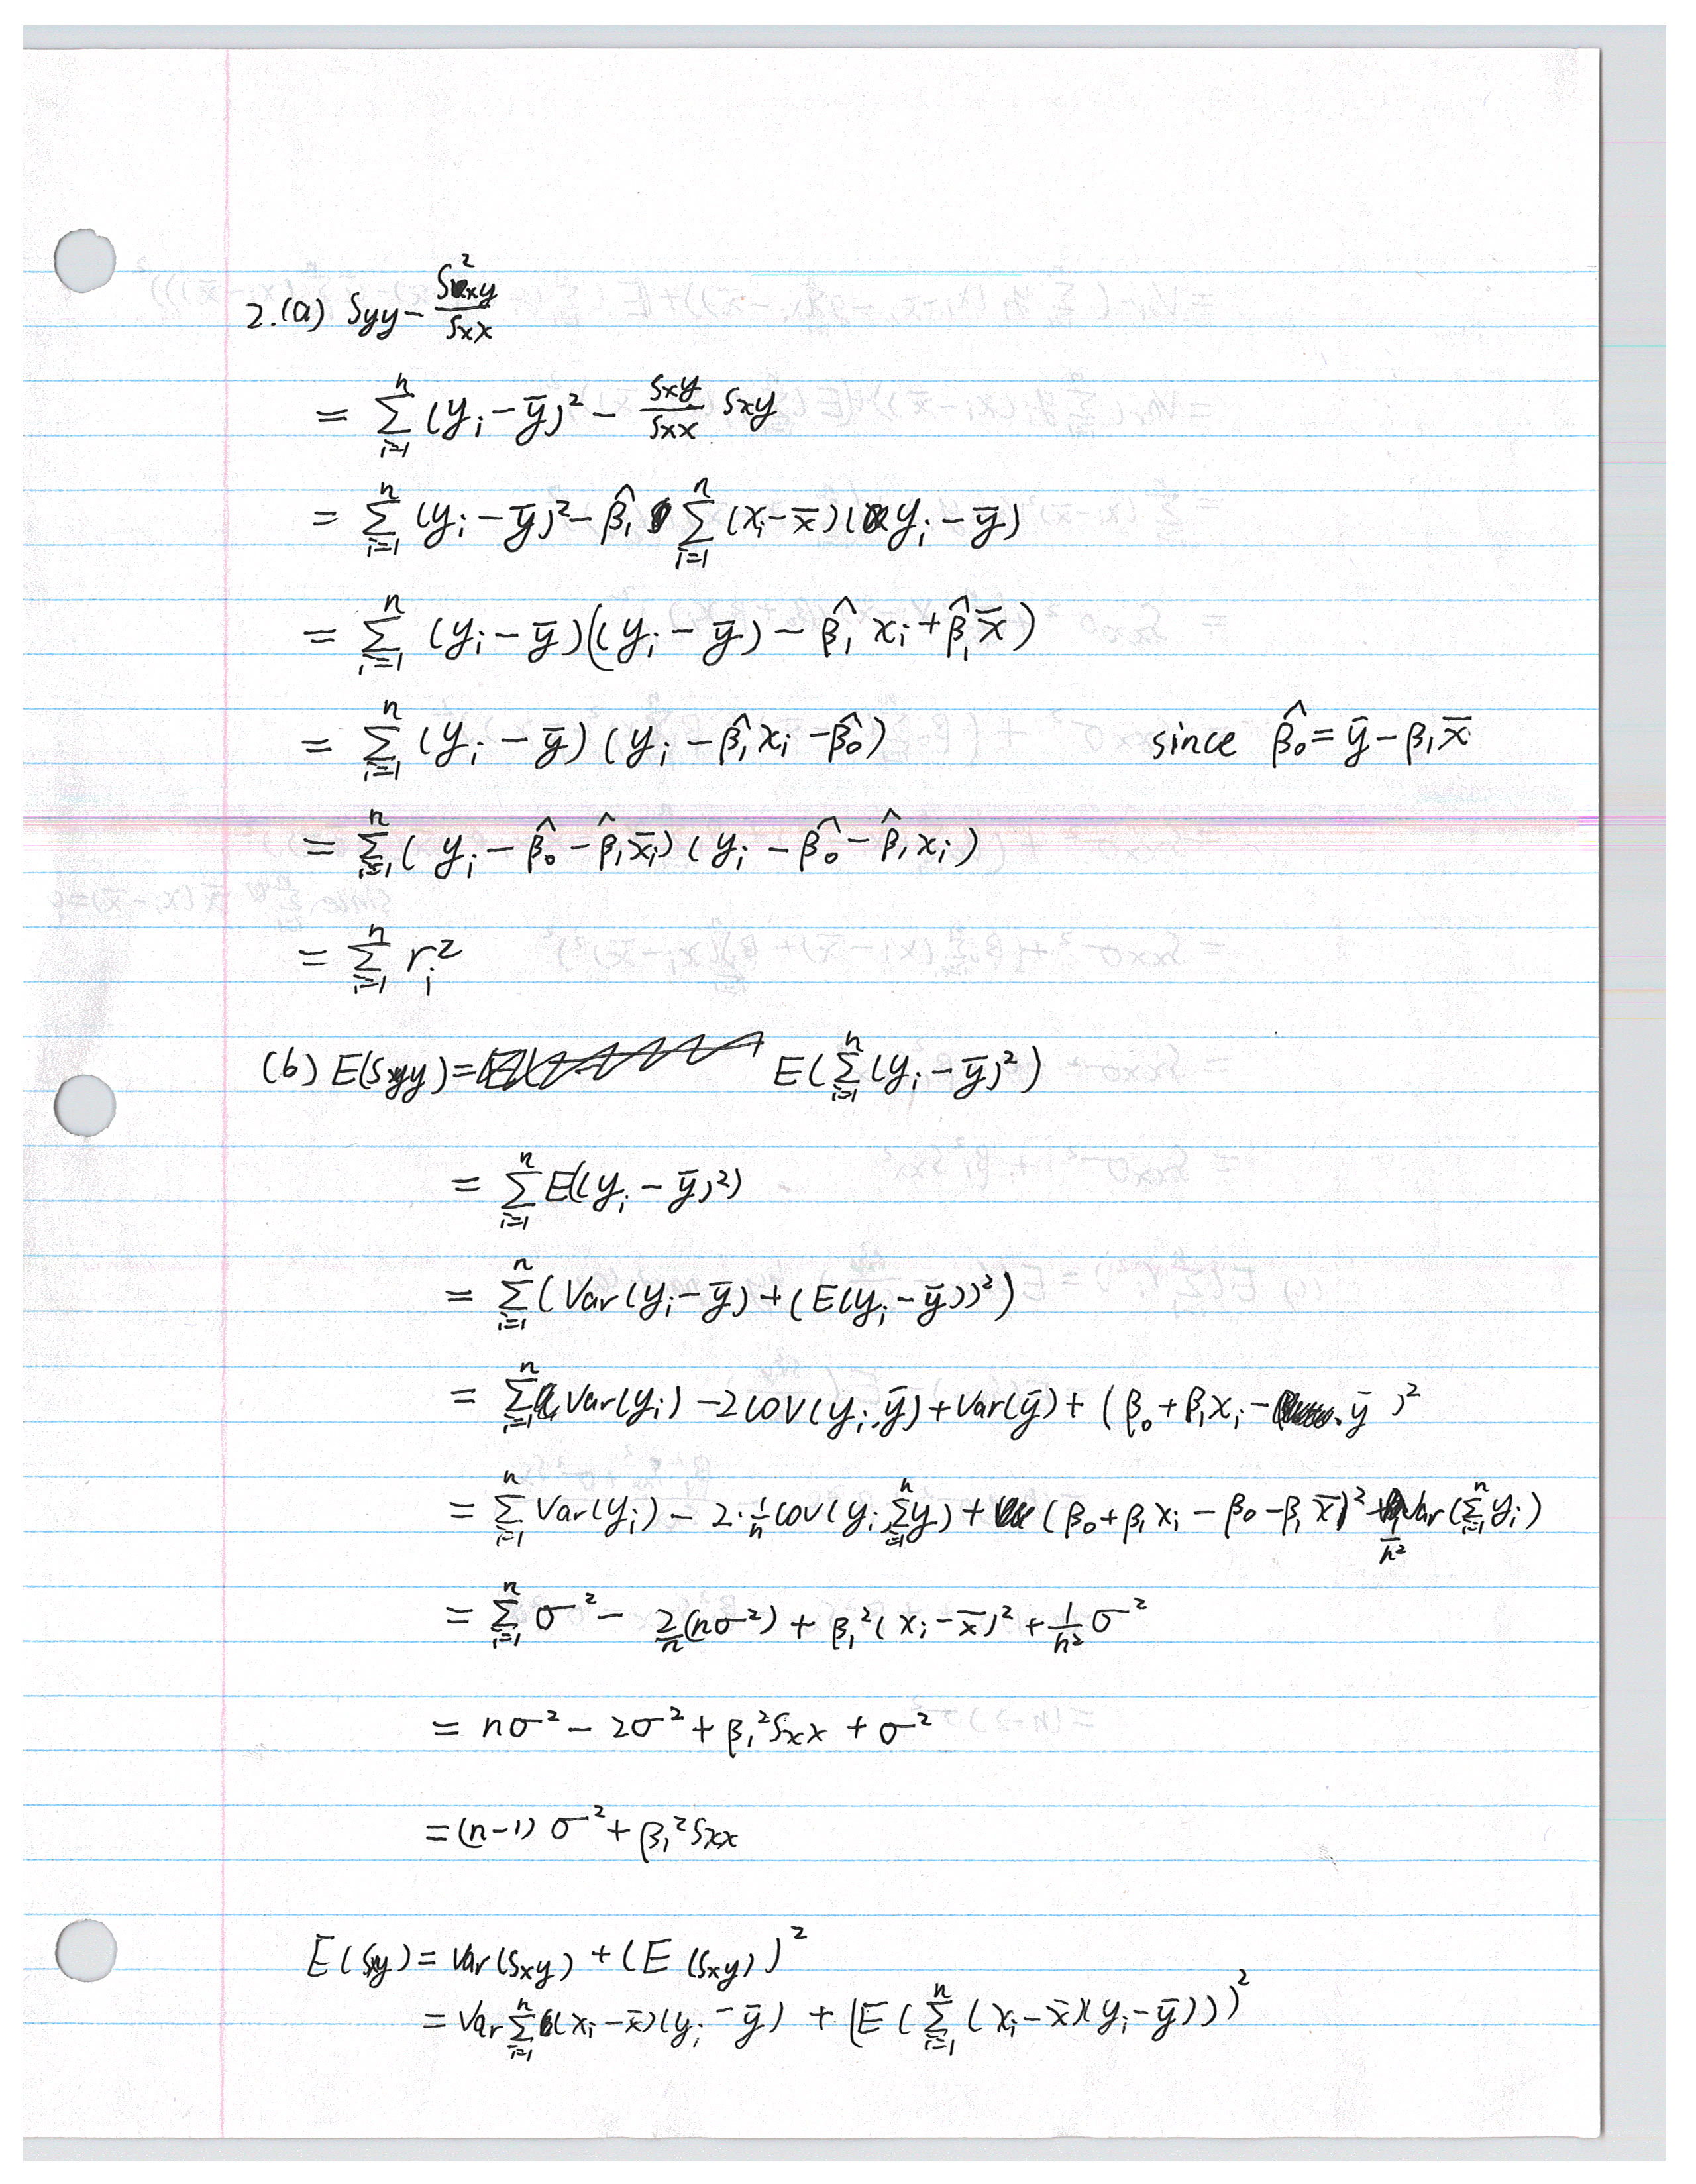 2.(a) Syy - S²xy / Sxx
= Σ_{i=1}^{n} (y_i - ȳ)² - Sxy/Sxx Sxy
= Σ_{i=1}^{n} (y_i - ȳ)² - β̂₁ Σ_{i=1}^{n} (x_i - x̄)(y_i - ȳ)
= Σ_{i=1}^{n} (y_i - ȳ)((y_i - ȳ) - β̂₁ x_i + β̂₁ x̄)
= Σ_{i=1}^{n} (y_i - ȳ)(y_i - β̂₁ x_i - β̂₀) since β̂₀ = ȳ - β₁ x̄
= Σ_{i=1}^{n} (y_i - β̂₀ - β̂₁ x̄_i)(y_i - β̂₀ - β̂₁ x_i)
= Σ_{i=1}^{n} r_i²
(b) E(Syy) = E(Σ_{i=1}^{n} (y_i - ȳ)²)
= Σ_{i=1}^{n} E((y_i - ȳ)²)
= Σ_{i=1}^{n} (Var(y_i - ȳ) + (E(y_i - ȳ))²)
= Σ_{i=1}^{n} Var(y_i) - 2COV(y_i, ȳ) + Var(ȳ) + (β₀ + β₁ x_i - ȳ)²
= Σ_{i=1}^{n} Var(y_i) - 2·1/n COV(y_i, Σ_{i=1}^{n} y) + (β₀ + β₁ x_i - β₀ - β₁ x̄)² + 1/n² Var(Σ_{i=1}^{n} y_i)
= Σ_{i=1}^{n} σ² - 2/n (nσ²) + β₁² (x_i - x̄)² + 1/n² σ²
= nσ² - 2σ² + β₁² Sxx + σ²
= (n-1) σ² + β₁² Sxx
E(Sxy) = Var(Sxy) + (E(Sxy))²
= Var Σ_{i=1}^{n} (x_i - x̄)(y_i - ȳ) + (E(Σ_{i=1}^{n} (x_i - x̄)(y_i - ȳ)))²